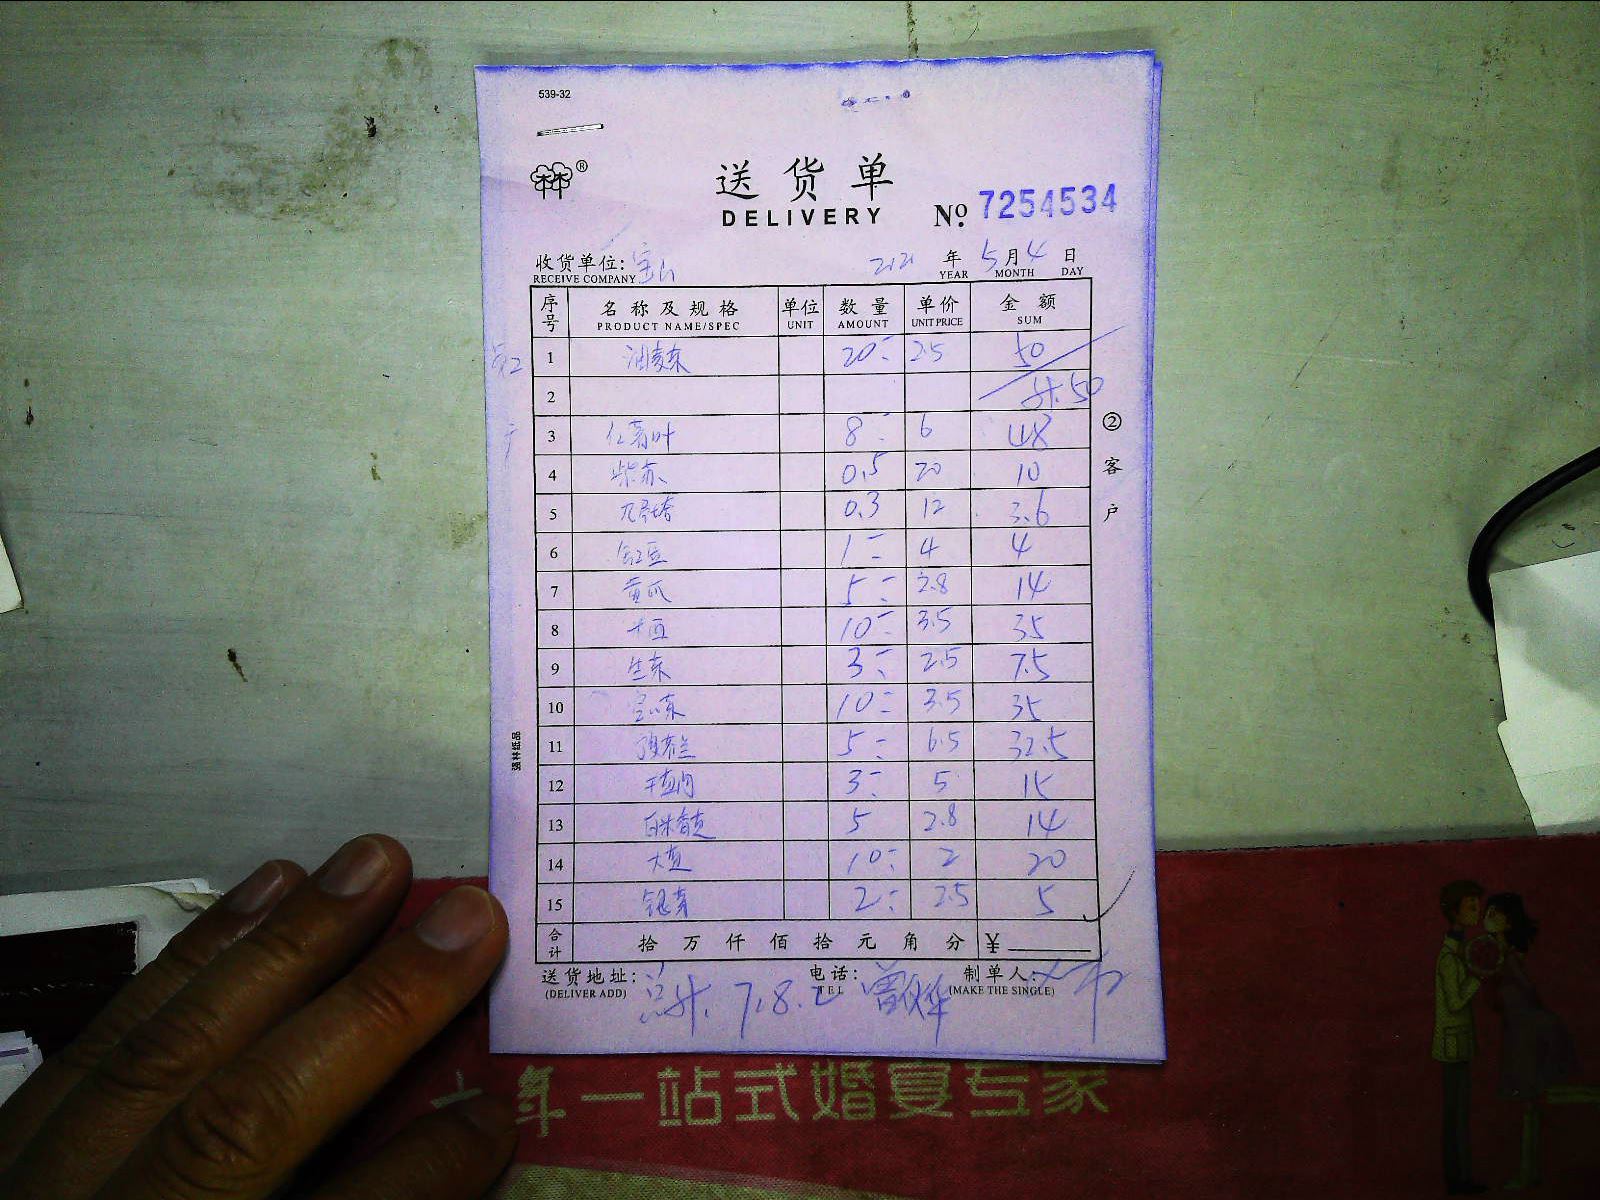 539-32
送货单
DELIVERY
No. 7254534
收货单位: 宝山 2021 年 5 月 4 日
RECEIVE COMPANY YEAR MONTH DAY
序号 名称及规格 单位 数量 单价 金额
PRODUCT NAME/SPEC UNIT AMOUNT UNIT PRICE SUM
员工
1 油麦菜 20 2.5 50
2 共.50
3 红薯叶 8 6 48
4 紫苏 0.5 20 10
5 九层塔 0.3 12 3.6
6 豆 1 4 4
7 黄瓜 5 2.8 14
8 10 3.5 35
9 生菜 3 2.5 7.5
10 10 3.5 35
11 5 6.5 32.5
12 3 5 15
13 5 2.8 14
14 大 10 2 20
15 2 2.5 5
合计 拾 万 仟 佰 拾 元 角 分 ¥
②客户
强林纸品
送货地址: 电话: 制单人:
(DELIVER ADD) TEL (MAKE THE SINGLE)
总共.
十年一站式婚宴专家